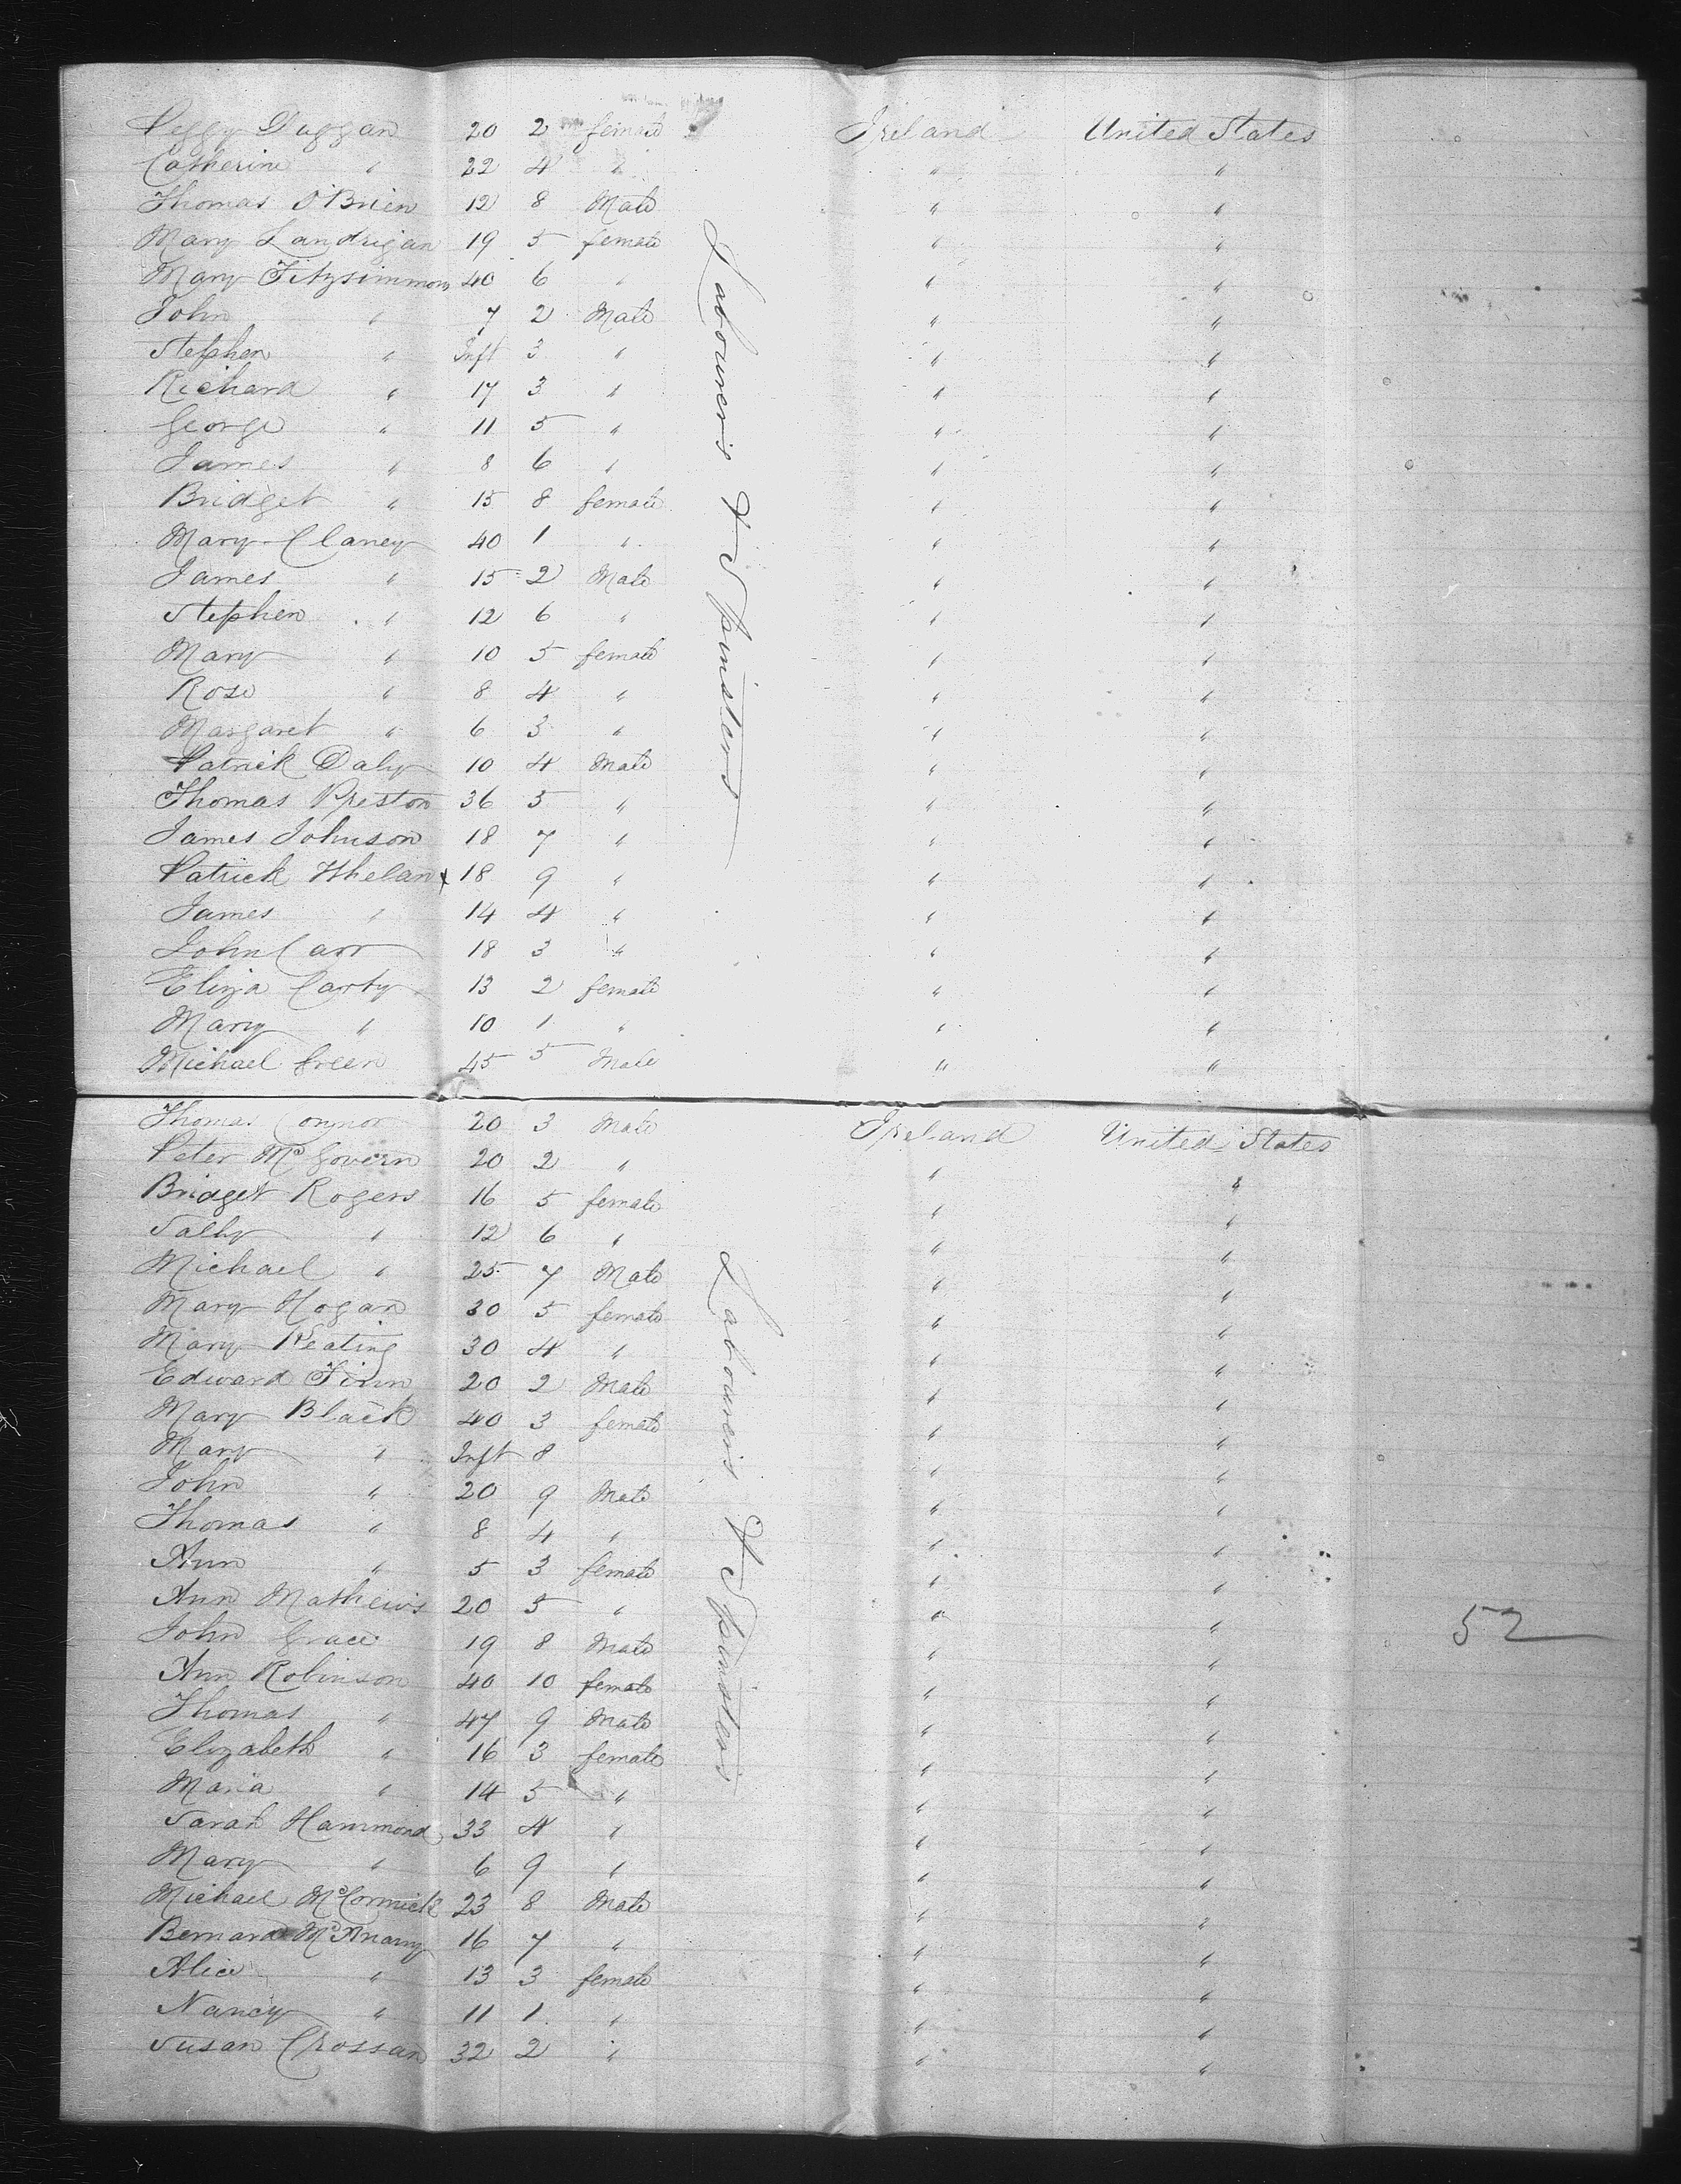 Peggy Duggan 20 2 female Ireland United States
Catherine " 22 4 " " "
Thomas O'Brien 12 8 Male " "
Mary Landrigan 19 5 female " "
Mary Fitzsimmons 40 6 " " "
John " 7 2 Male " "
Stephen " Inft 3 " " "
Richard " 17 3 " " "
George " 11 5 " " "
James " 8 6 " " "
Bridget " 15 8 female " "
Mary Clancy 40 1 " " "
James " 15 2 Male " "
Stephen " 12 6 " " "
Mary " 10 5 female " "
Rose " 8 4 " " "
Margaret " 6 3 " " "
Patrick Daly 10 4 Male " "
Thomas Preston 36 5 " " "
James Johnson 18 7 " " "
Patrick Whelan 18 9 " " "
James " 14 4 " " "
John Carr 18 3 " " "
Eliza Carty 13 2 female " "
Mary " 10 1 " " "
Michael Green 45 5 Male " "
Labourers & Spinsters
Thomas Connor 20 3 Male Ireland United States
Peter McGovern 20 2 " " "
Bridget Rogers 16 5 female " "
Sally " 12 6 " " "
Michael " 25 7 Male " "
Mary Hogan 30 5 female " "
Mary Keating 30 4 " " "
Edward Finn 20 2 Male " "
Mary Black 40 3 female " "
Mary " Inft 8 " "
John " 20 9 Male " "
Thomas " 8 4 " " "
Ann " 5 3 female " "
Ann Mathews 20 5 " " "
John Grace 19 8 Male " "
Ann Robinson 40 10 female " "
Thomas " 47 9 Male " "
Elizabeth " 16 3 female " "
Maria " 14 5 " " "
Sarah Hammond 33 4 " " "
Mary " 6 9 " " "
Michael McCormick 23 8 Male " "
Bernard McAnany 16 7 " " "
Alice " 13 3 female " "
Nancy " 11 1 " " "
Susan Crossan 32 2 " " "
Labourers & Spinsters
52